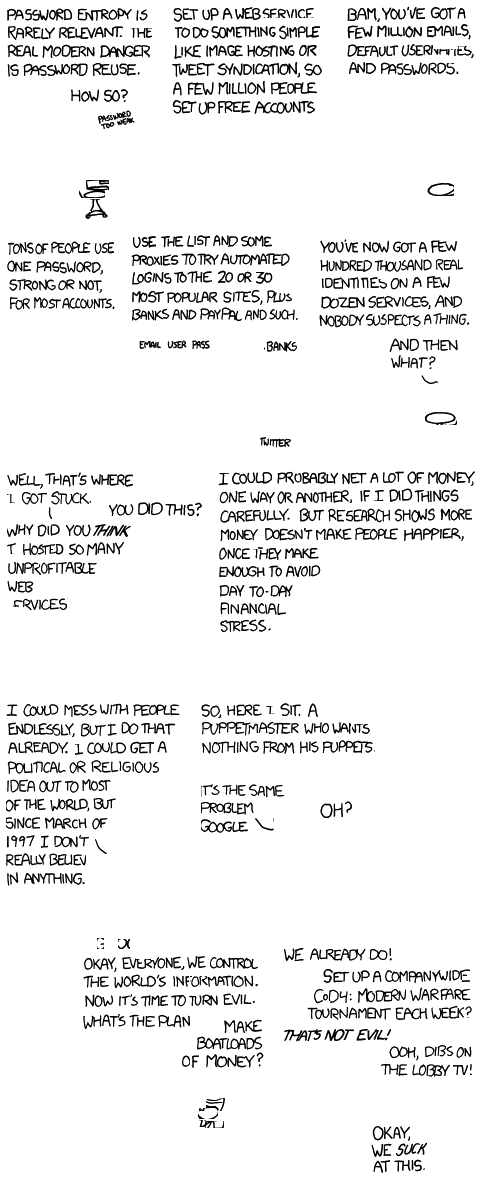 PASSWORD ENTROPY IS
RARELY RELEVANT. THE
REAL MODERN DANGER
IS PASSWORD REUSE.
HOW SO?
PASSWORD
TOO WEAK
SET UP A WEB SERVICE
TO DO SOMETHING SIMPLE
LIKE IMAGE HOSTING OR
TWEET SYNDICATION, SO
A FEW MILLION PEOPLE
SET UP FREE ACCOUNTS
BAM, YOU'VE GOT A
FEW MILLION EMAILS,
DEFAULT USERNAMES,
AND PASSWORDS.
TONS OF PEOPLE USE
ONE PASSWORD,
STRONG OR NOT,
FOR MOST ACCOUNTS.
USE THE LIST AND SOME
PROXIES TO TRY AUTOMATED
LOGINS TO THE 20 OR 30
MOST POPULAR SITES, PLUS
BANKS AND PAYPAL AND SUCH.
EMAIL USER PASS
BANKS
TWITTER
YOU'VE NOW GOT A FEW
HUNDRED THOUSAND REAL
IDENTITIES ON A FEW
DOZEN SERVICES, AND
NOBODY SUSPECTS A THING.
AND THEN
WHAT?
WELL, THAT'S WHERE
I GOT STUCK.
YOU DID THIS?
WHY DID YOU THINK
I HOSTED SO MANY
UNPROFITABLE
WEB
ERVICES
I COULD PROBABLY NET A LOT OF MONEY,
ONE WAY OR ANOTHER, IF I DID THINGS
CAREFULLY. BUT RESEARCH SHOWS MORE
MONEY DOESN'T MAKE PEOPLE HAPPIER,
ONCE THEY MAKE
ENOUGH TO AVOID
DAY-TO-DAY
FINANCIAL
STRESS.
I COULD MESS WITH PEOPLE
ENDLESSLY, BUT I DO THAT
ALREADY. I COULD GET A
POLITICAL OR RELIGIOUS
IDEA OUT TO MOST
OF THE WORLD, BUT
SINCE MARCH OF
1997 I DON'T
REALLY BELIEV
IN ANYTHING.
SO, HERE I SIT. A
PUPPETMASTER WHO WANTS
NOTHING FROM HIS PUPPETS.
IT'S THE SAME
PROBLEM
GOOGLE
OH?
OKAY, EVERYONE, WE CONTROL
THE WORLD'S INFORMATION.
NOW IT'S TIME TO TURN EVIL.
WHAT'S THE PLAN
MAKE
BOATLOADS
OF MONEY?
WE ALREADY DO!
SET UP A COMPANYWIDE
CoD4: MODERN WARFARE
TOURNAMENT EACH WEEK?
THAT'S NOT EVIL!
OOH, DIBS ON
THE LOBBY TV!
OKAY,
WE SUCK
AT THIS.